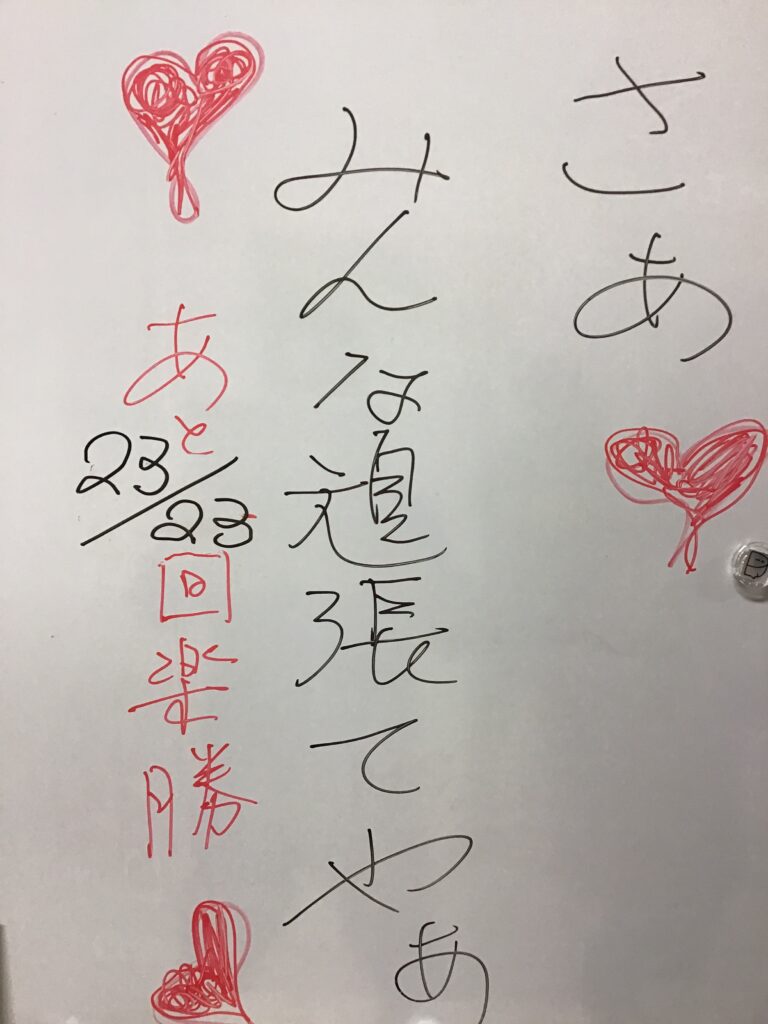 さあ
みんな頑張てやあ
あと23/23回楽勝